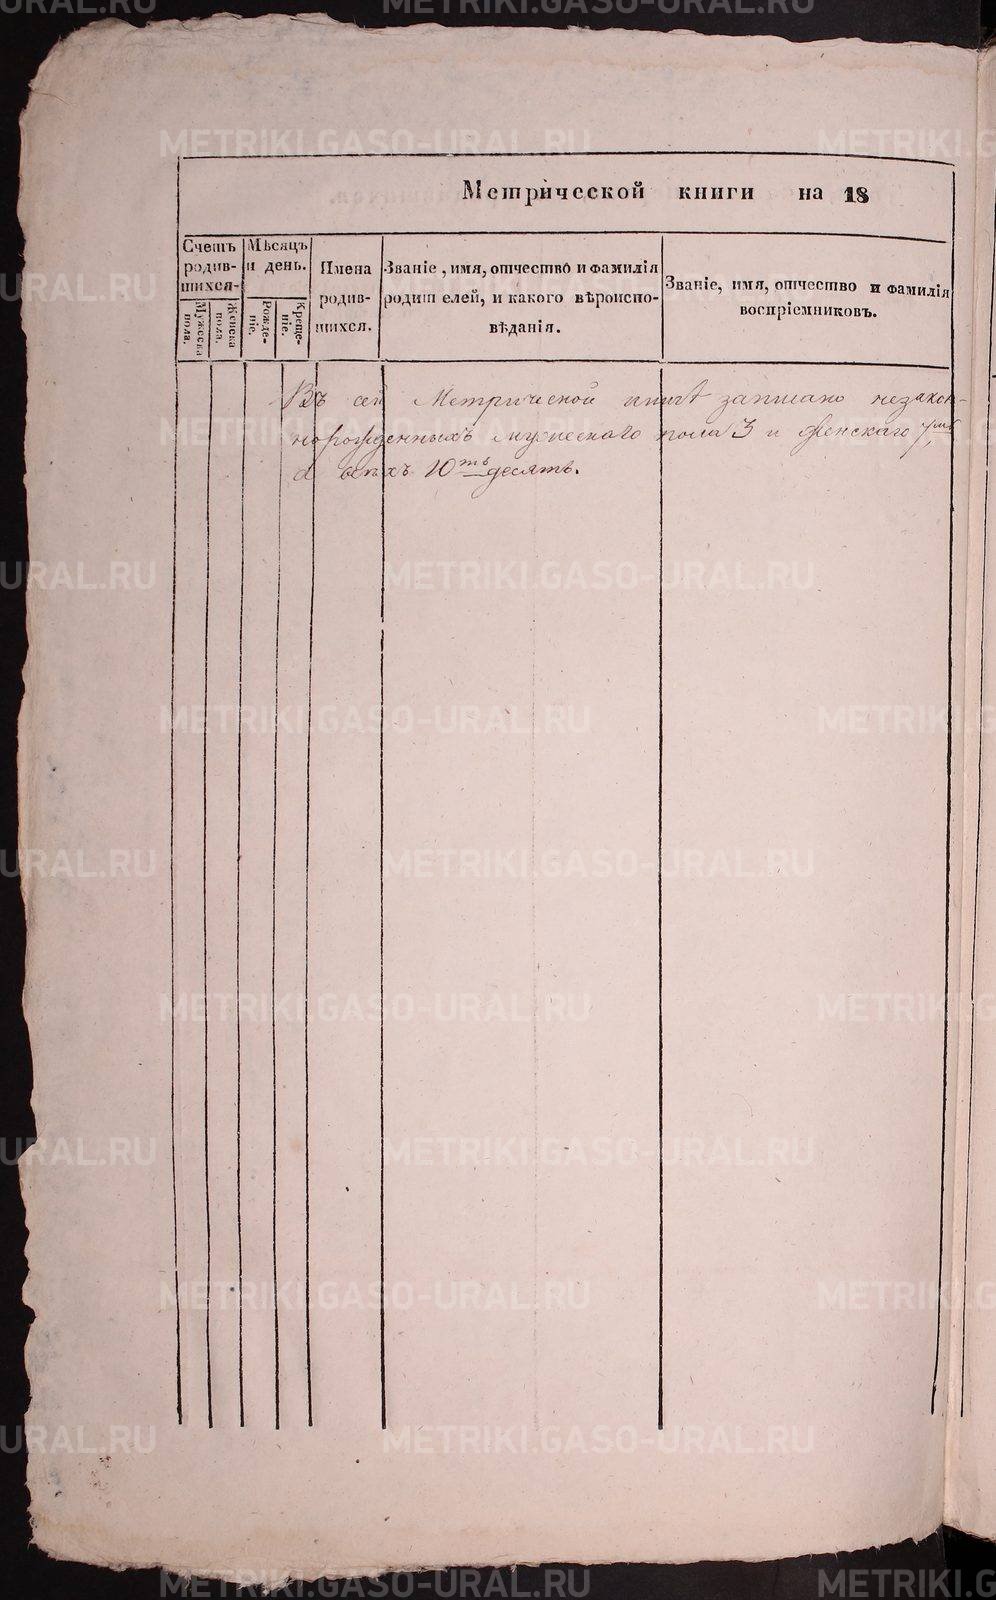 METRIKI.GASO-URAL.RU
Метрической книги на 18
Счетъ родив-шихся.
Мужеска пола.
Женска пола.
Мѣсяцъ и день.
Рожде-ніе.
Креще-ніе.
Имена родив-шихся.
Званіе, имя, отчество и фамилія
родителей, и какого вѣроиспо-
вѣданія.
Званіе, имя, отчество и фамилія
воспріемниковъ.
Въ сей Метрической книгѣ записано незакон-
норожденныхъ мужескаго пола 3 и женскаго 7мь
а всѣхъ 10ть десять.